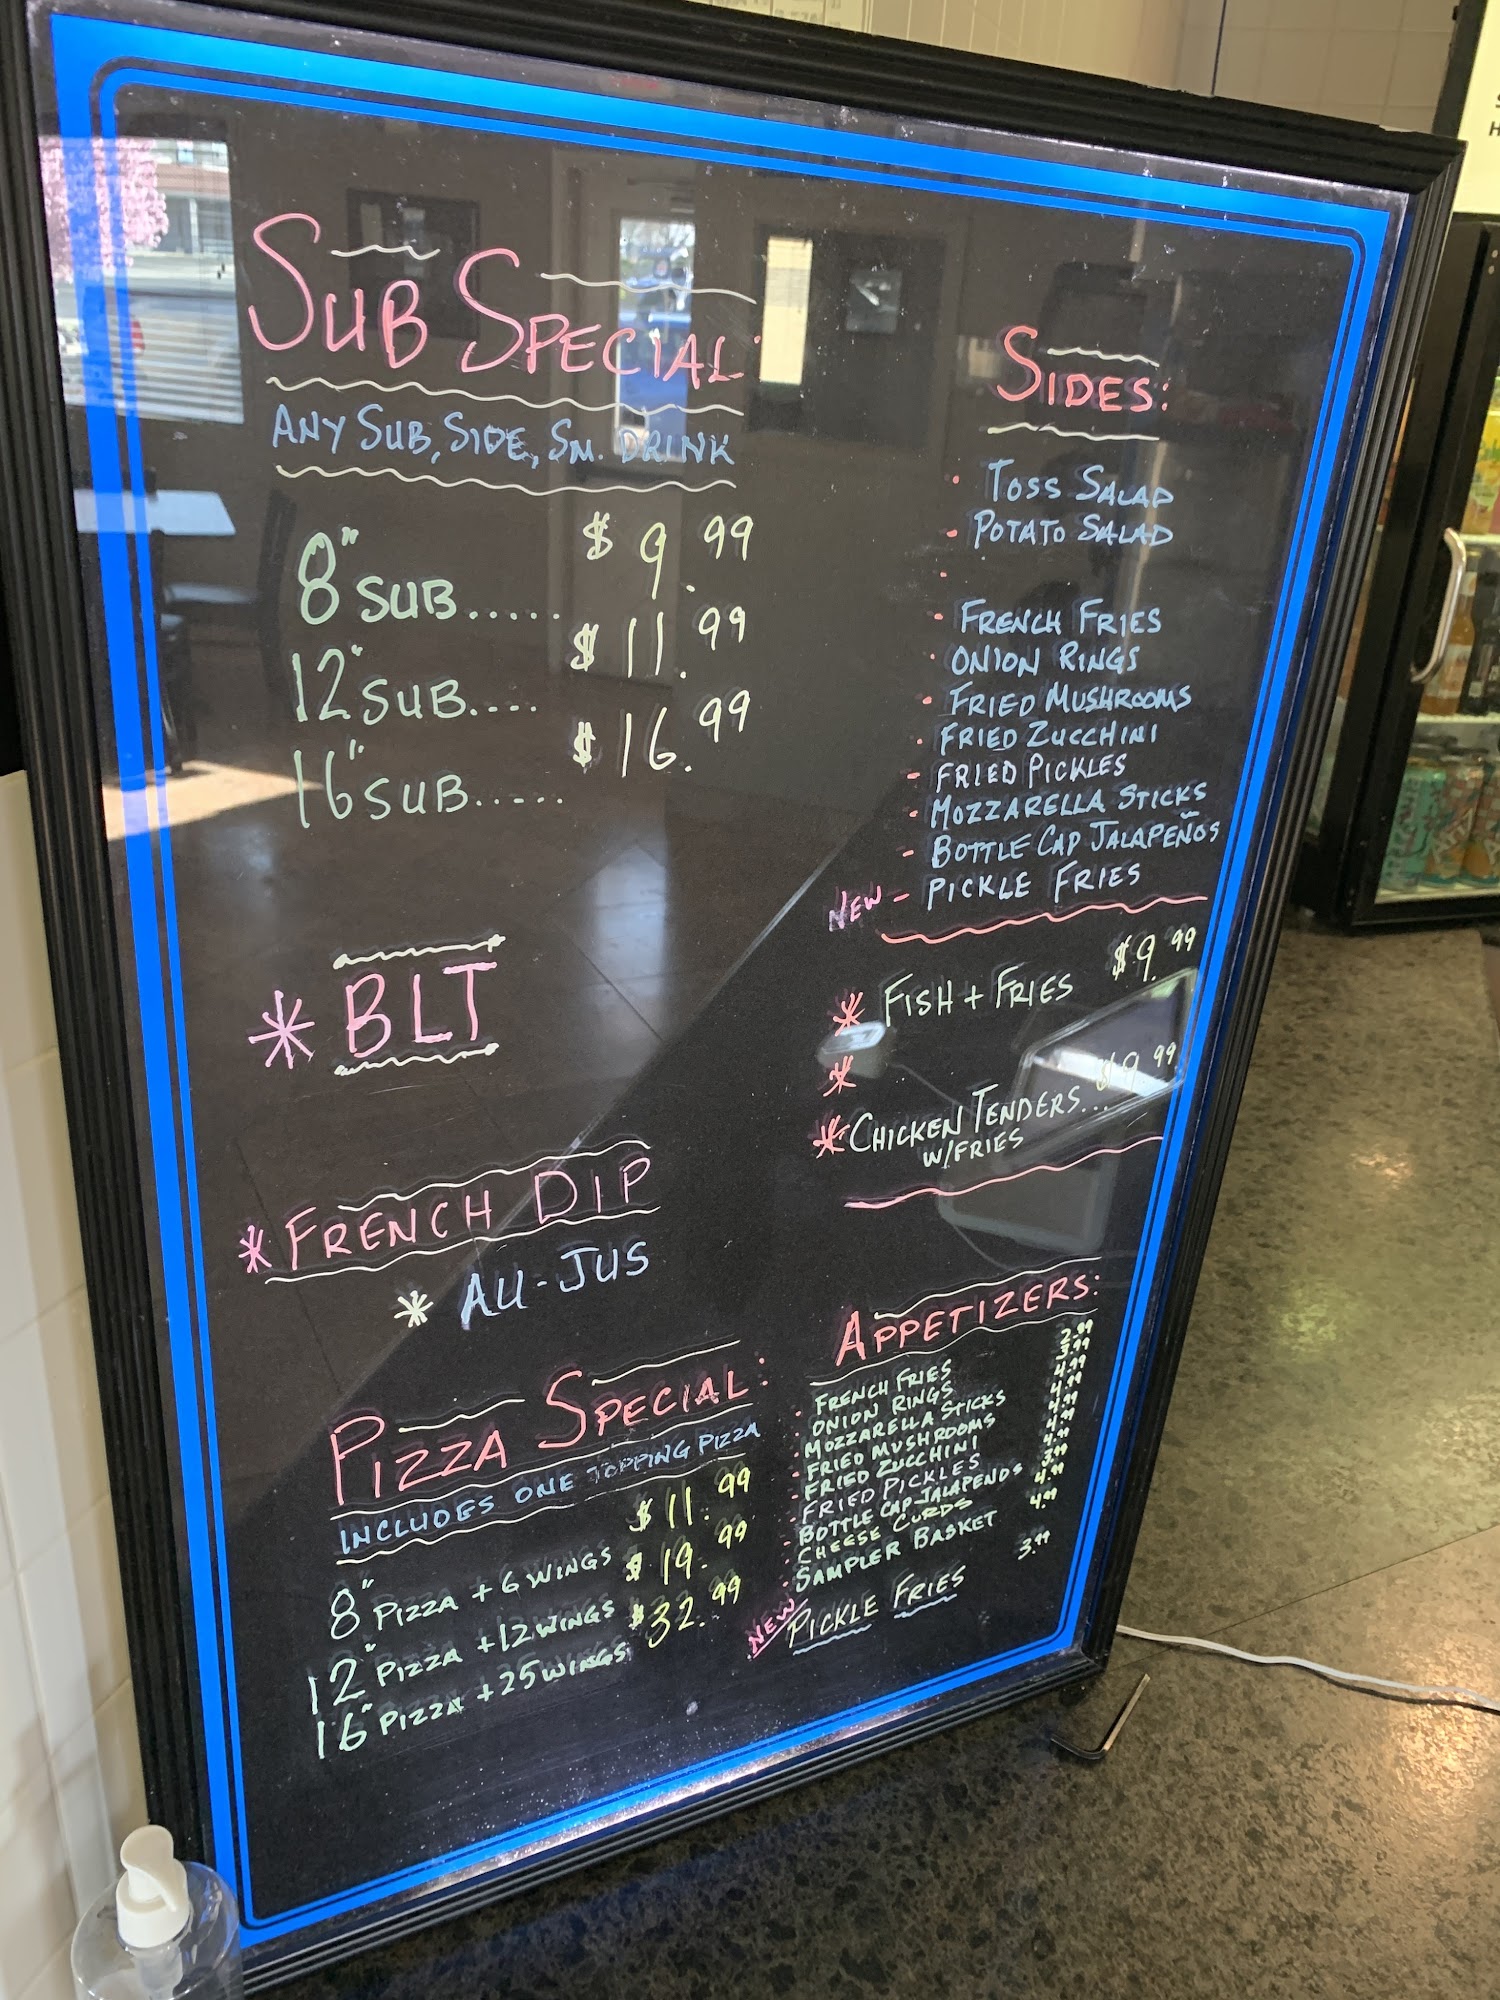 SUB SPECIAL:
ANY SUB, SIDE, SM. DRINK
8" SUB..... $9.99
12" SUB.... $11.99
16" SUB..... $16.99
* BLT
* FRENCH DIP
* AU-JUS
PIZZA SPECIAL:
INCLUDES ONE TOPPING PIZZA
8" PIZZA + 6 WINGS $11.99
12" PIZZA + 12 WINGS $19.99
16" PIZZA + 25 WINGS $32.99
SIDES:
- TOSS SALAD
- POTATO SALAD
- FRENCH FRIES
- ONION RINGS
- FRIED MUSHROOMS
- FRIED ZUCCHINI
- FRIED PICKLES
- MOZZARELLA STICKS
- BOTTLE CAP JALAPEÑOS
NEW - PICKLE FRIES
* FISH + FRIES $9.99
*
* CHICKEN TENDERS... $9.99
W/FRIES
APPETIZERS:
- FRENCH FRIES 2.99
- ONION RINGS 3.99
- MOZZARELLA STICKS 4.99
- FRIED MUSHROOMS 4.99
- FRIED ZUCCHINI 4.99
- FRIED PICKLES 4.99
- BOTTLE CAP JALAPENOS 3.99
- CHEESE CURDS 4.99
- SAMPLER BASKET 4.99
NEW PICKLE FRIES 3.99